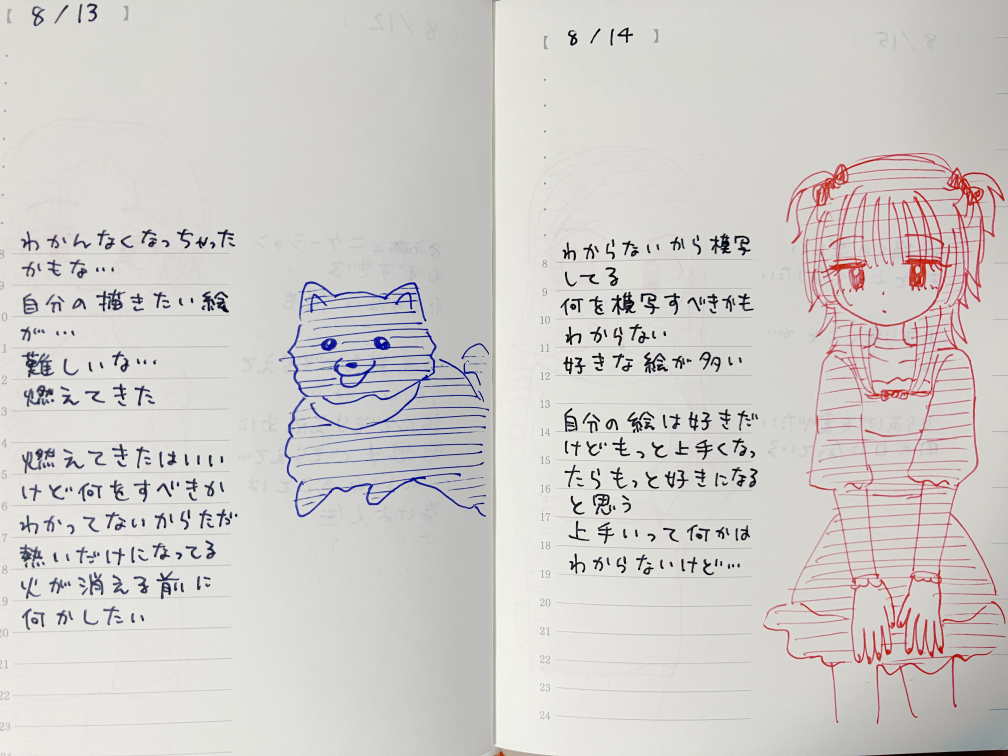 【 8/13 】
わかんなくなっちゃった
かもな…
自分の描きたい絵
が…
難しいな…
燃えてきた
燃えてきたはいい
けど何をすべきか
わかってないからただ
熱いだけになってる
火が消える前に
何かしたい
【 8/14 】
わからないから模写
してる
何を模写すべきかも
わからない
好きな絵が多い
自分の絵は好きだ
けどもっと上手くなっ
たらもっと好きになる
と思う
上手いって何かは
わからないけど…
8
9
10
11
12
13
14
15
16
17
18
19
20
21
22
23
24